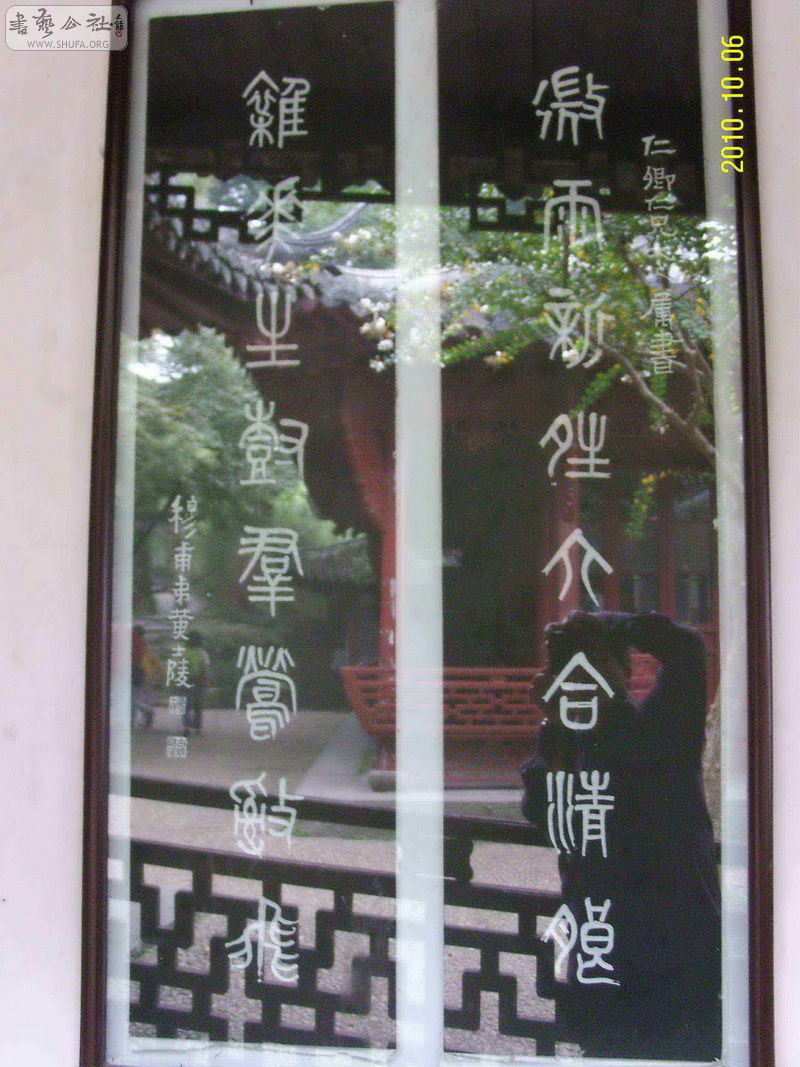 書藝公社
WWW.SHUFA.ORG
2010.10.06
仁卿仁兄大人属書
微雨新晴六合清朗
雜華生尌羣鶯亂飛
穆甫弟黄士陵